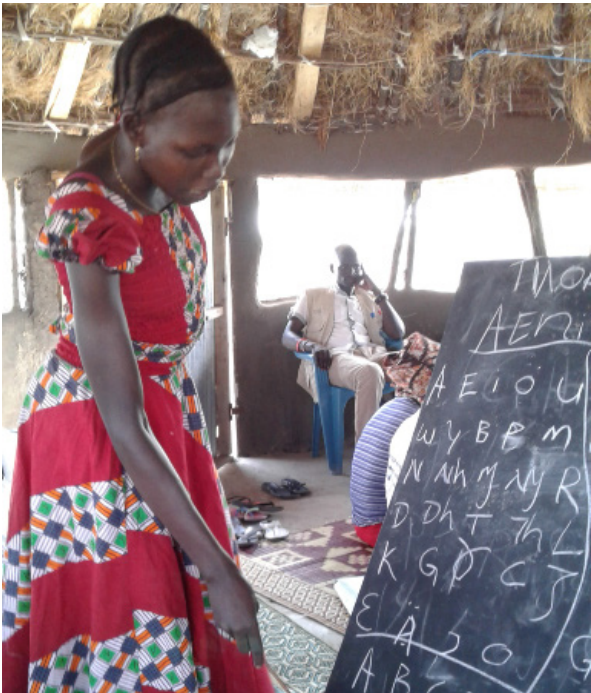 A E i O U
W Y B P M
N Nh Ŋ Ny R
D Dh T Th L
K G Ɣ C J
Ɛ Ä Ɔ O
A B